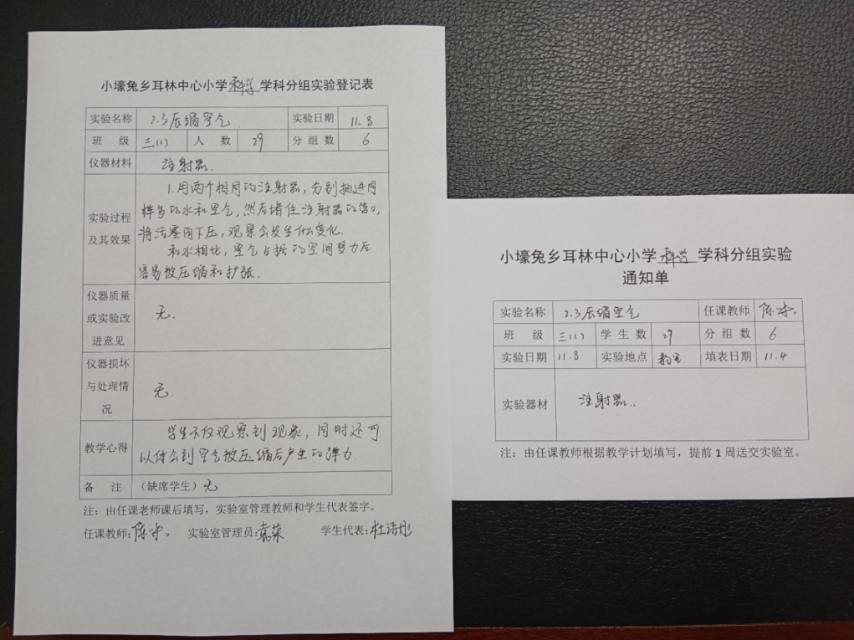 小壕兔乡耳林中心小学科学学科分组实验登记表
实验名称 2.3压缩空气 实验日期 11.8
班 级 三(1) 人 数 29 分组数 6
仪器材料 注射器.
实验过程及其效果
1.用两个相同的注射器,分别抽进同
样多的水和空气,然后堵住注射器的管口,
将活塞用下压,观察会发生什么变化.
和水相比,空气占据的空间
容易被压缩和扩张.
仪器质量或实验改进意见 无.
仪器损坏与处理情况 无.
教学心得
学生不仅观察到现象,同时还可
以体会到空气被压缩后产生的弹力.
备 注 (缺席学生)无
注:由任课老师课后填写,实验室管理教师和学生代表签字。
任课教师: 实验室管理员: 学生代表:
小壕兔乡耳林中心小学科学学科分组实验
通知单
实验名称 2.3压缩空气 任课教师
班 级 三(1) 学生数 29 分组数 6
实验日期 11.8 实验地点 教室 填表日期 11.4
实验器材 注射器.
注:由任课教师根据教学计划填写,提前1周送交实验室。